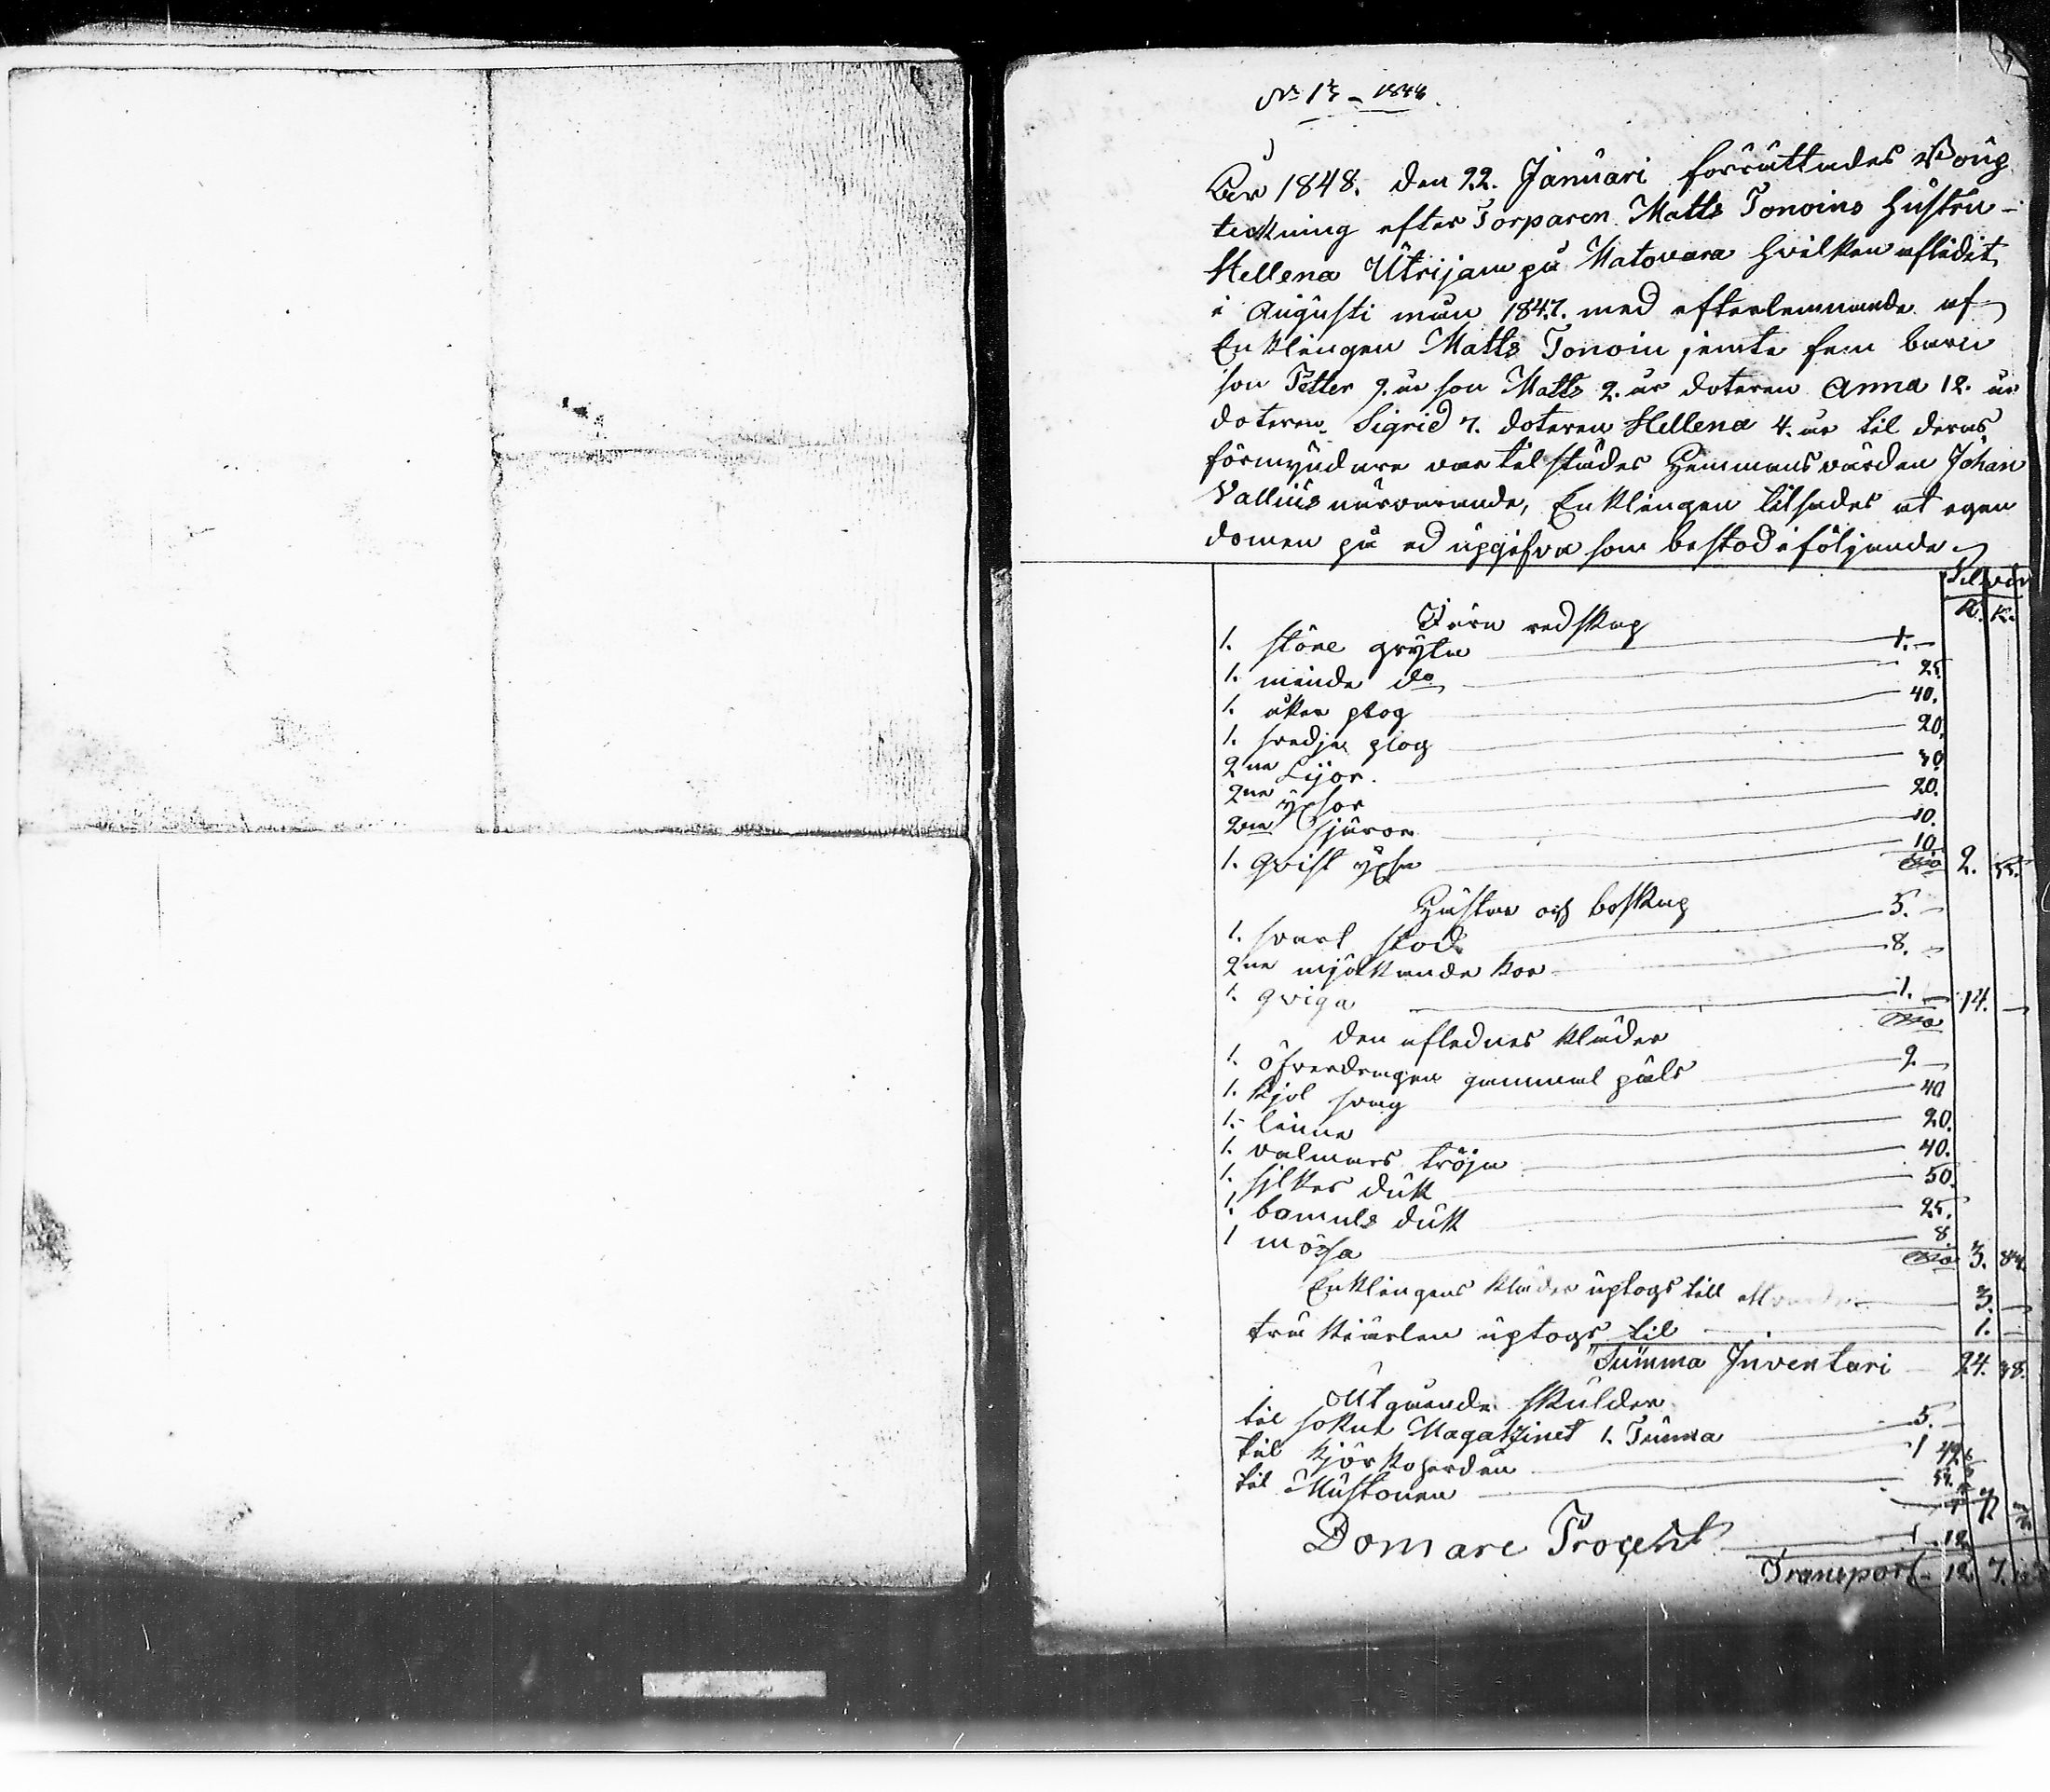 N:o 13 – 1848.
År 1848. den 22. Januari förrättades Boup
tekning efter Torparen Matts Tonoins hustru
Hellena Utrijain på Matovara hvilken aflidit
i Augusti mån 1847. med efterlemnande af
Enklingen Matts Tonoin jemte fem barn
son Petter 9. år son Matts 2. år doteren Anna 12. år
doteren Sigrid 7. doteren Hellena 4. år til deras
förmyndare var til städes Hemmans värden Johan
Vallius närvarande, Enklingen tilsades at egen
domen på ed upgifva som bestod i följande
Silwer
R. K.
Järn redskap
1. störe gryta 1. –
1. minde do 25.
1. åker plog 40.
1. svedje plog 20.
2ne Lijor 30.
2ne yxsor 20.
2ne skjäror 10.
1. qvist yxsa 10. 2. 55.
Hästar och boskap
1. svart stod 5. –
2ne mjölkande kor 8. –
1. qviga 1. – 14. –
den aflednes kläder
1. öfverdragen gammal päls 2. –
1. kjol svag 40
1. linne 20.
1. valmars tröja 40.
1. silkes duk 50.
1. bomuls duk 25.
1 mössa 8. 3. 83.
Enklingens kläder uptogs till 3. –
trä kiärlen uptogs til 1. –
Summa Inventari 24. 38.
Utgående skulder
til sokne Magatzinet 1. Tunna 5. –
til kjörkoherden 1 42
til Mustonen
Domare Procent 1. 12
Transport 12 7.